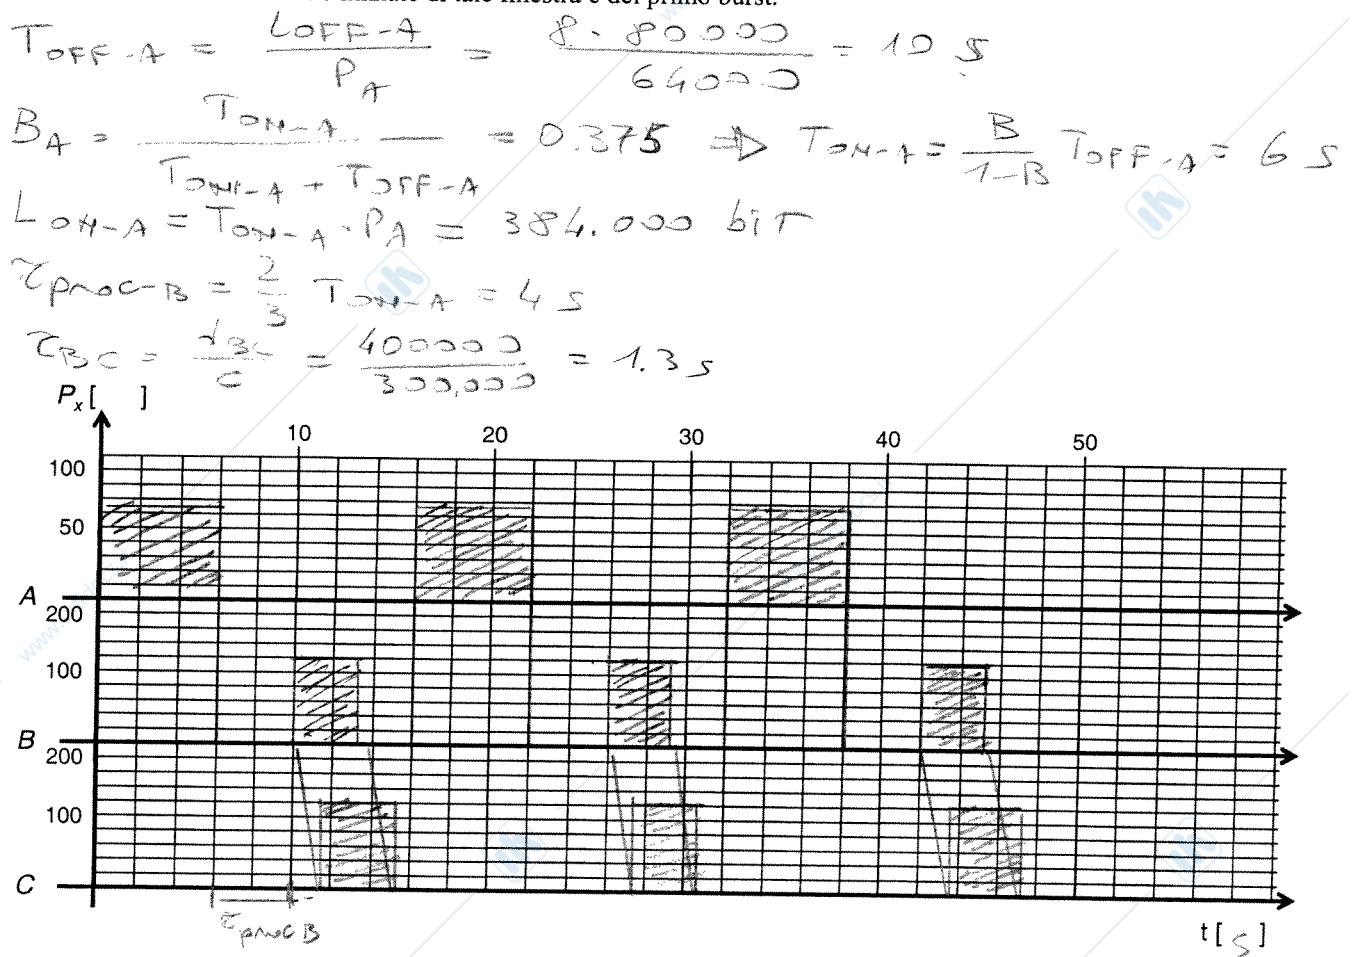 di tale finestra e del primo burst.
T_OFF-A = L_OFF-A / P_A = 8 · 80000 / 64000 = 10 s
B_A = T_ON-A / (T_ON-A + T_OFF-A) = 0.375 ⇒ T_ON-A = B / (1-B) T_OFF-A = 6 s
L_ON-A = T_ON-A · P_A = 384.000 bit
τ_proc-B = 2/3 T_ON-A = 4 s
τ_BC = d_BC / c = 400000 / 300,000 = 1.3 s
P_x [ ]
10 20 30 40 50
100
50
A
200
100
B
200
100
C
τ_proc B
t [ s ]